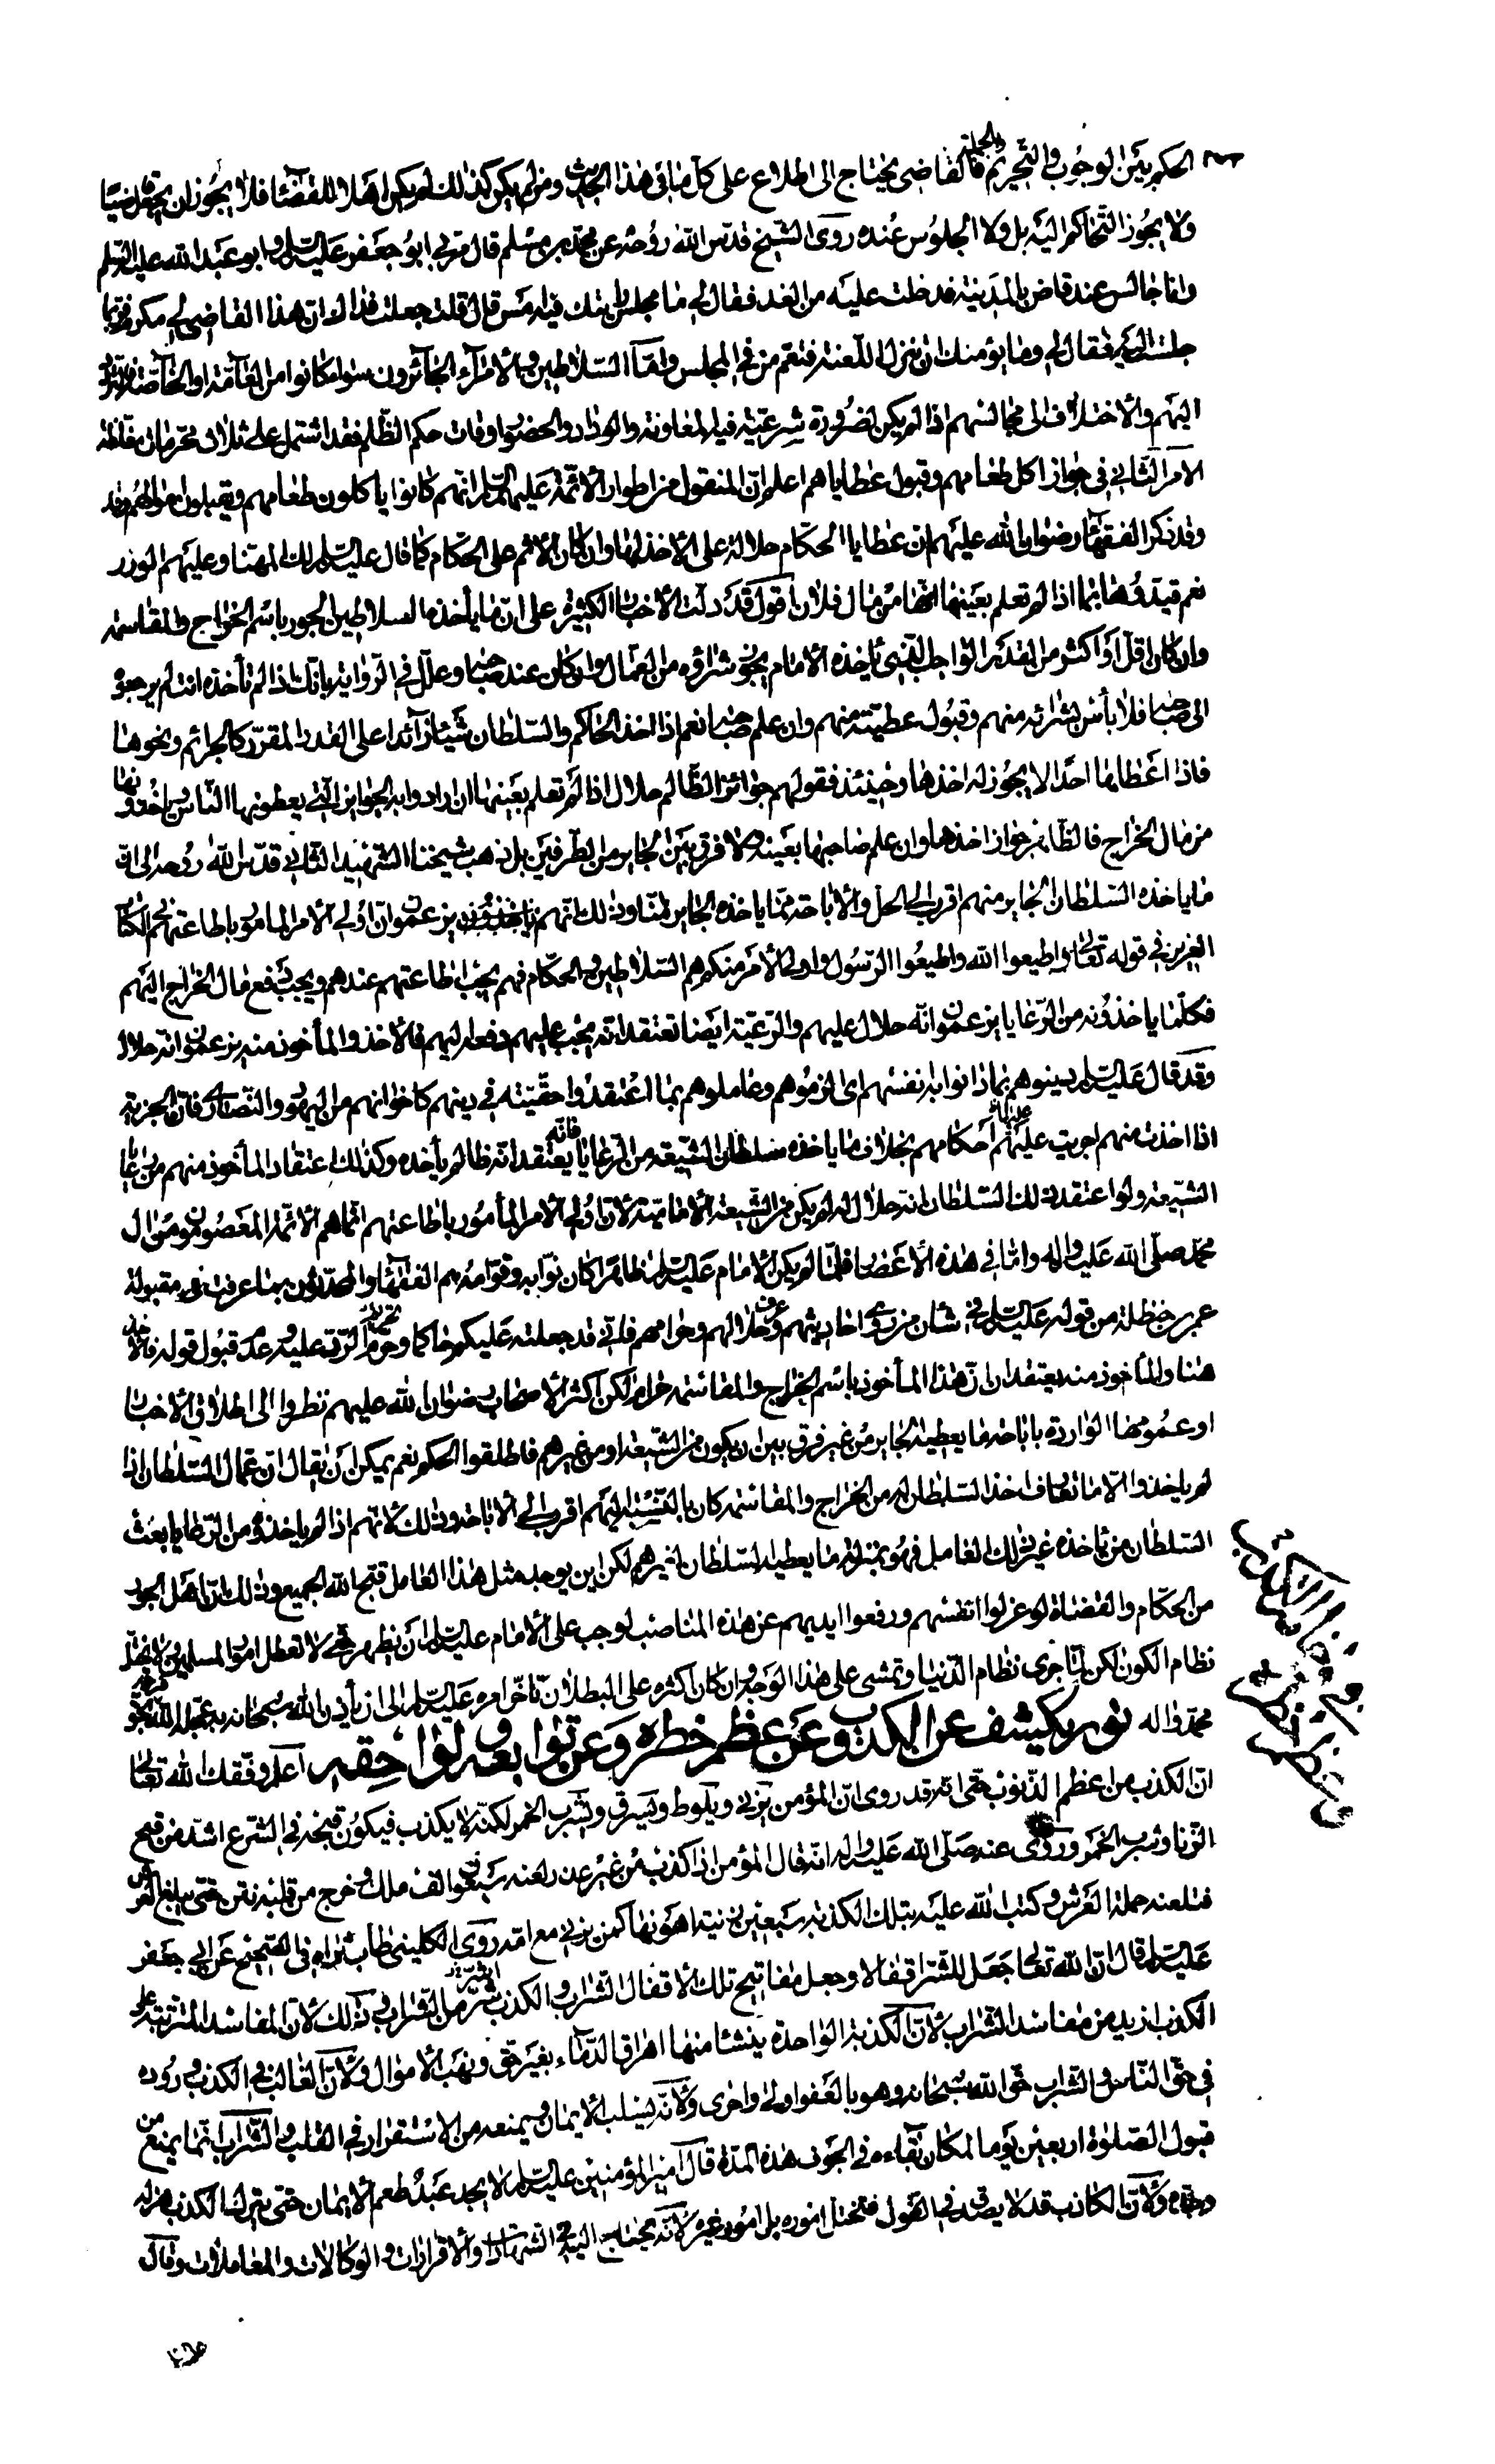 الحكم بين الوجوب والتحريم وبالجملة فالقاضي يحتاج الى اطلاع على كل ما في هذا الحديث ومن لم يكن كذلك لم يكن اهلا للقضاء فلا يجوز ان يجعل قاضيا
ولا يجوز التحاكم اليه بل ولا الجلوس عنده روى الشيخ قدس الله روحه عن محمد بن مسلم قال مر بي ابو جعفر عليه السلم او ابو عبد الله عليه السلم
وانا جالس عند قاض بالمدينة فدخلت عليه من الغد فقال لي ما مجلس رايتك فيه امس قال قلت جعلت فداك ان هذا القاضي لي مكرم فربما
جلست اليه فقال لي وما يؤمنك ان تنزل اللعنة فتعم من في المجلس وامّا السلاطين والامرآء الجآئرون سواء كانوا من العآمّة او الخآصّة
اليهم والاختلاف الى مجالسهم اذا لم يكن لضرورة شرعيّة فيه المعاونة والوداد والحضور اوقات حكم الظلم فقد اشتمل على ثلاث محرمات مغلظة
الامر الثاني في جواز اكل طعامهم وقبول عطاياهم اعلم ان المنقول من اطوار الائمّة عليهم السلم انهم كانوا ياكلون طعامهم ويقبلون جوائزهم
وقد ذكر الفقهآء رضوان الله عليهم ان عطايا الحكّام حلالة على الاخذ لها وان كان الاثم على الحكام كما قال عليه السلم لك المهنا وعليهم الوزر
نعم قيدوها بما اذا لم تعلم بعينها انها من مال فلان اقول قد دلت الاخبار الكثيرة على ان ما يأخذه السلاطين الجور باسم الخراج والمقاسمة
وان كان اقل او اكثر من القدر الواجب الذي يأخذه الامام يجوز شراؤه من العمال وان كان عند صاحبه وعلل في الرواية بانك اذا لم تأخذه انت لم يرجعوه
الى صاحبه فلا بأس بشرائه منهم وقبول عطيته منهم وان علم صاحبها نعم اذا اخذ الحاكم والسلطان شيئا زآئدا على القدر المقرر كالجرائم ونحوها
فاذا اعطاها احدًا لا يجوز له اخذها وحينئذ فقولهم جوائز الظالم حلال اذا لم تعلم بعينها ان ارادوا به الجوايز التي يعطونها الناس ويأخذونها
من مال الخراج فالظاهر جواز اخذها وان علم صاحبها بعينه ولا فرق بين الجاير من الطرفين بل ذهب شيخنا الشهيد الثاني قدّس الله روحه الى ان
ما ياخذه السلطان الجاير منهم اقرب الى الحل والاباحة ممّا ياخذه الجاير منّا وذلك انهم يزعمون ان اولي الامر المامور باطاعتهم في الكتاب
العزيز في قوله تعالى واطيعوا الله واطيعوا الرسول واولي الامر منكم هم السلاطين والحكّام فهم يجب اطاعتهم عندهم ويجب دفع مال الخراج اليهم
فكلّما ياخذونه من الرعايا يزعمون انه حلال عليهم والرعيّة ايضا تعتقد انه يجب عليهم دفعه اليهم فالاخذ والمأخوذ منه يزعمون انه حلال
وقد قال عليه السلم دينوهم بما دانوا به نفسهم اى الزموهم وعاملوهم بما اعتقدوا حقّيته في دينهم كاخوانهم من اليهود والنصارى فان الجزية
اذا اخذت منهم اجريت عليهم احكامهم بخلاف ما ياخذه سلطان الشيعة من الرعايا فانه يعتقد انه ظالم يأخذه وكذلك اعتقاد المأخوذ منهم من رعايا
الشيعة ولو اعتقد ذلك السلطان انه حلال له لم يكن من الشيعة الاماميّة لان اولي الامر المأمور باطاعتهم انما هم الائمة المعصومون من ال
محمد صلى الله عليه واله وامّا في هذه الاعصار فلمّا لم يكن الامام عليه السلم ظاهرا كان نوّابه وقوّامه هم الفقهآء والمحدثون بما عرفت في مقبولة
عمر بن حنظلة من قوله عليه السلم في شان من روى احاديثهم وعرف حلالهم وحرامهم فاني قد جعلته عليكم حاكما وحرم الردّ عليه وعدم قبول قوله
هنا والمأخوذ منه يعتقدان ان هذا المأخوذ باسم الخراج والمقاسمة حرام لكن اكثر الاصحاب رضوان الله عليهم نظروا الى اطلاق الاخبار
او عمومها الواردة باباحة ما يعطيه الجاير من غير فرق بين ان يكون من الشيعة او من غيرهم فاطلقوا الحكم نعم يمكن ان يقال ان عمال السلطان اذا
لم ياخذوا الا ما تعارف اخذ السلطان له من الخراج والمقاسمة كان بالنسبة اليهم اقرب الى الاباحة وذلك لانهم اذا لم ياخذوه من الرعايا بعث
السلطان من يأخذه غير ذلك العامل فهو بمنزلة ما يعطيه السلطان لغيرهم لكن اين يوجد مثل هذا العامل قبح الله الجميع وذلك ان اهل الجور
من الحكّام والقضاة لو عزلوا انفسهم ورفعوا ايديهم عن هذه المناصب لوجب على الامام عليه السلم ان يظهر حتى لا تعطل امور المسلمين ولا يختل
نظام الكون لكن لما جرى نظام الدنيا وتمشى على هذا الوجه وان كان اكثره على البطلان تأخّر امره عليه السلم الى ان يأذن الله سبحانه به عجل الله فرجه بحق
محمد واله نور يكشف عن الكذب وعن عظم خطره وعن توابعه ولواحقه اعلم وفّقك الله تعالى
انّ الكذب من اعظم الذنوب حتى انه قد روى ان المؤمن يزني ويلوط ويسرق ويشرب الخمر لكنّه لا يكذب فيكون قبحه في الشرع اشد من قبح
الزنا وشرب الخمر وروى عنه صلى الله عليه واله انه قال المؤمن اذا كذب من غير عذر لعنه سبعون الف ملك وخرج من قلبه نتن حتى يبلغ العرش
فتلعنه حملة العرش وكتب الله عليه بتلك الكذبة سبعين زنية اهونها كمن يزني مع امه روى الكليني طاب ثراه في الصحيح عن ابي جعفر
عليه السلم قال ان الله تعالى جعل للشر اقفالا وجعل مفاتيح تلك الاقفال الشراب والكذب شر من الشراب وذلك لان المفاسد المترتبة على
الكذب ازيد من مفاسد الشراب لأنّ الكذبة الواحدة ينشئا منها اهراق الدمآء بغير حق ونهب الاموال ولأنّ الغالب في الكذب وروده
في حق الناس والشراب حق الله سبحانه وهو بالعفو اولى واحرى ولأنّه يسلب الايمان ويمنعه من الاستقرار في القلب والشراب انما يمنع من
قبول الصلوة اربعين يوما لمكان بقاءه في الجوف هذه المدة قال امير المؤمنين عليه السلم لا يجد عبد طعم الايمان حتى يترك الكذب هزله
وجده ولأنّ الكاذب قد لا يصدق في القول فتختل اموره بل امور غيره لانه يحتاج اليه في الشهادات والاقرارات والوكالات والمعاملات وقال